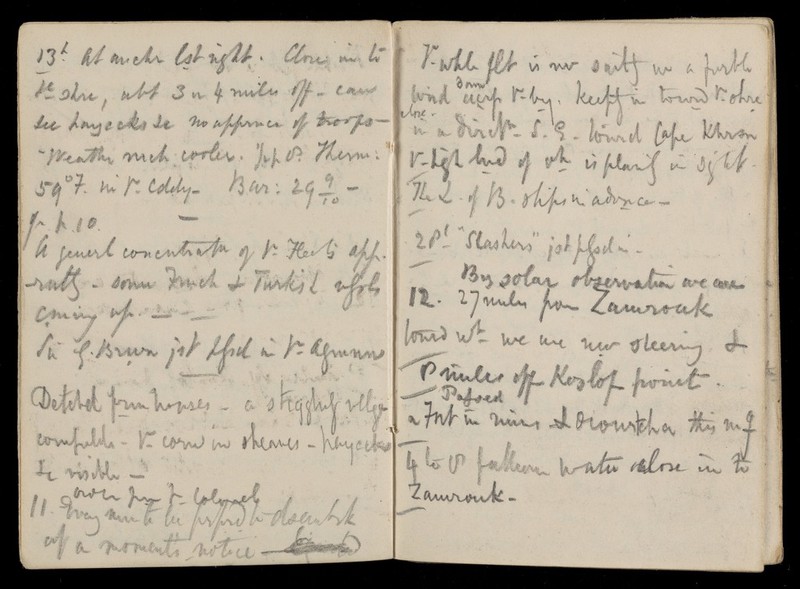 13th At anchr lst night. Close in to
the shre, abt 3 or 4 miles off - can
see haycocks &c no apprnce of troops -
- Weather much cooler. ½ p. 8. Therm:
59° F. in r. Cddy - Bar: 29 9/10 -
¼ p. 10.
A generl concentratn of r. Fleets app-
- rntly - some Frnch & Turkish
coming up. -
Sir G. Brown jst pssd in r. Agmmnn
Detchd frm houses - a strgglng vllge
cornfields - r. corn in sheaves - haycocks
&c visible -
order frm r. Colonel
11. Every man to be prprd to dsembrk
at a moment's notice
r. whle flt is nw
wind r. by. keepg in towrd r. shre
close
in a directn S.E. towrd Cape Khrsn
r. hgh lnd of wh is plainly in sight.
The L. of B. ships in advnce -
28th "Slashers" jst pssd in -
By solar observation we are
12. 27 miles from Zamrouk
towrd wh we are nw steering &
8 miles off Kozlof point.
Passed
a Fort in ruins & this mg
4 to 8 fathom water close in to
Zamrouk -